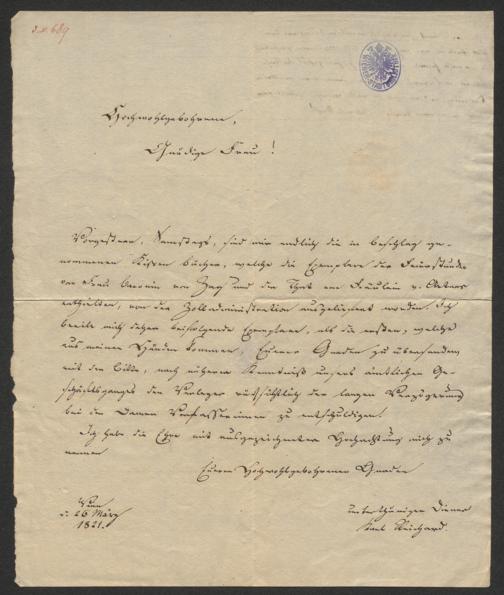 Hochwohlgebohrene,
Gnädige Frau!
Vorgestern, Samstags, sind mir endlich die in Beschlag ge-
nommenen Kisten Bücher, welche die Exemplare der
von Frau Baronin von Zay und die That von Fräulein v. Artner
enthielten, von der Zolladministration ausgeliefert worden. Ich
beeile mich daher beifolgende Exemplare, als die ersten, welche
aus meinen Händen kommen, Euerer Gnaden zu übersenden,
mit der Bitte, nach näherer Kenntniß unsers amtlichen Ge-
schäftsganges den Verleger rücksichtlich der langen Verzögerung
bei den Damen Verfasserinnen zu entschuldigen.
Ich habe die Ehre mit ausgezeichneter Hochachtung mich zu
nennen
Euerer Hochwohlgebohrenen Gnaden
Wien
d. 26 März
1821.
unterthänigen Diener
Karl Reichard.